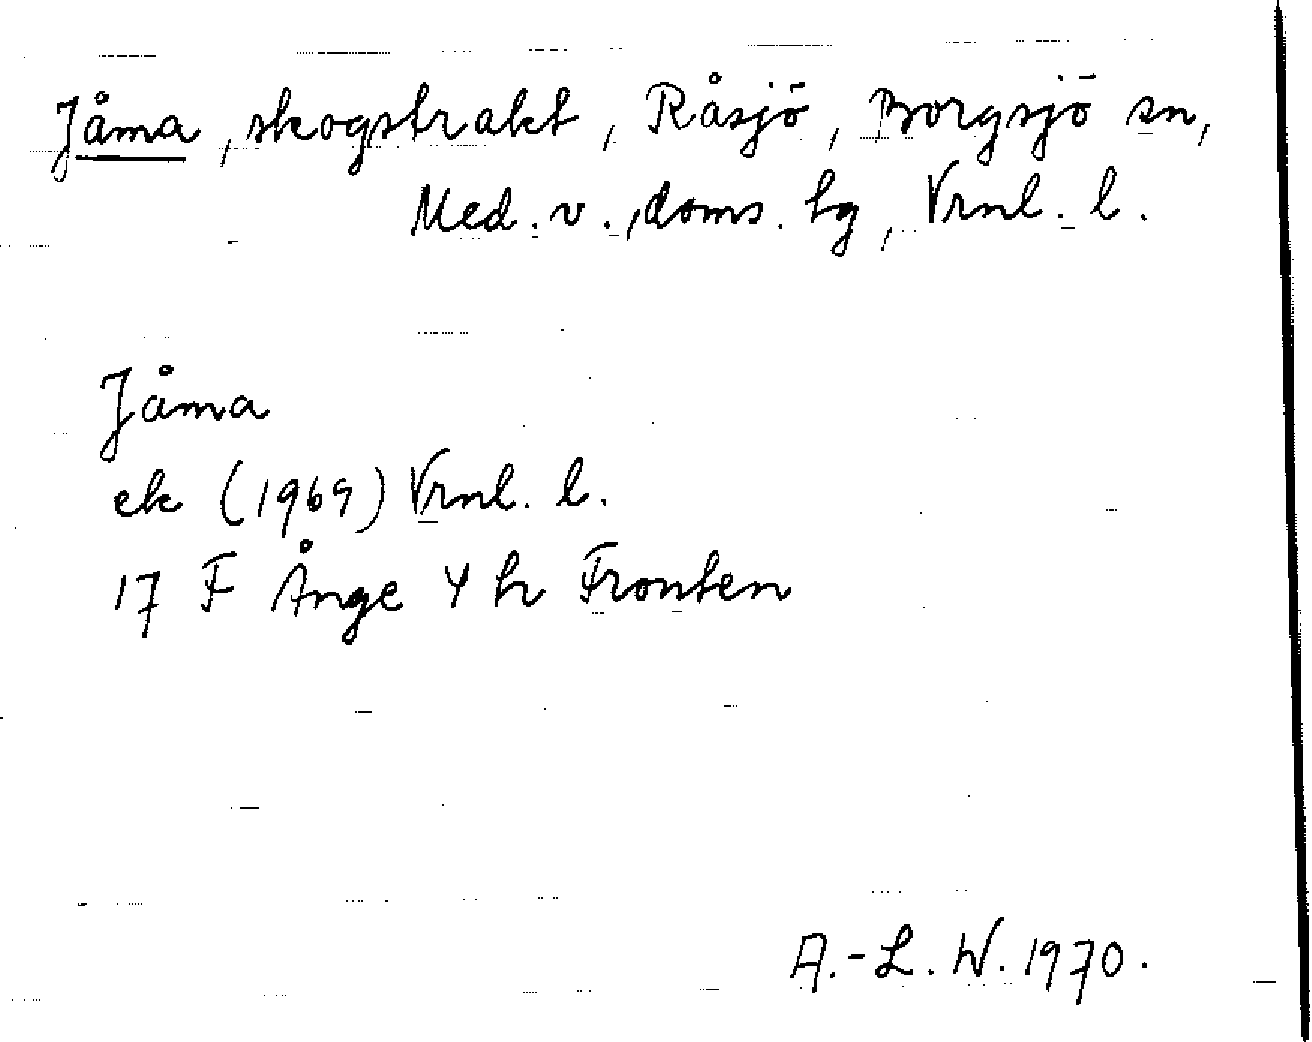 Jåma, skogstrakt, Råsjö, Borgsjö sn,
Med. v., doms. hg, Vrnl. l.
Jåma
ek (1969) Vrnl. l.
17 F Ånge 4 h Fronten
A.-L. W. 1970.